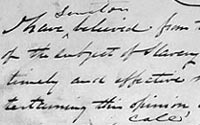 I have believed from t
of the subject of Slavery
timely and effective
tertaining this opinion